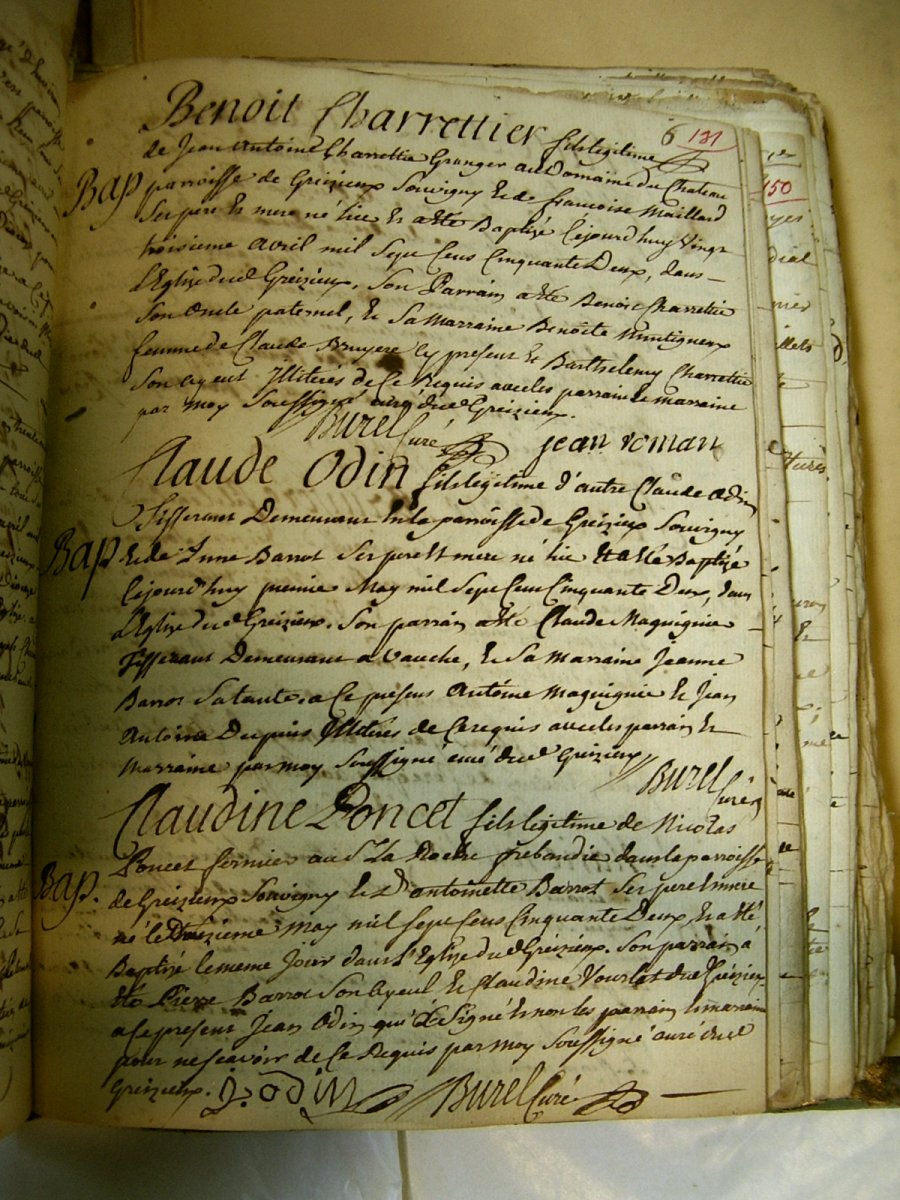 6 131
Benoit Charrettier fils legitime
de Jean Antoine Charrettie Granger au Domaine du Chateau
Bap parroisse de Greizieux Souvigny & de francoise Maillard
Ses pere & mere né hier & a été Baptizé Cejourd'huy Vingt
troisieme avril mil Sept Cens Cinquante Deux, dans
L'Eglise dud Greizieux. Son Parrain a été Benoit Charrettie
Son Oncle paternel, & Sa Marraine Benoite
femme de Claude Bruyere Cy present & Barthelemy Charrettie
Son ayeul Illiterés de Ce Requis avec les parrain & marraine
par moy Soussigné curé dud Greizieux.
Burel Curé jean roman
Claude Odin fils legitime d'autre Claude Odin
Tisserant Demeurant en la parroisse de Greizieux Souvigny
Bap & de Anne Barrot Ses pere & mere né hier & a été Baptizé
Cejourd'huy premier May mil Sept Cens Cinquante Deux, dans
L'Eglise dud Greizieux. Son parrain a été Claude Maguignie
Tisserant Demeurant a Vauche, & Sa Marraine Jeanne
Barrot Sa tante. a Ce presens Antoine Maguignie & Jean
Antoine Dupuis Illiterés de Ce requis avec les parrain &
Marraine par moy Soussigné curé dud Greizieux
Burel Curé
Claudine Poncet fils legitime de Nicolas
Poncet fermier au Sr La Roche prebandie dans la parroisse
Bap. de Greizieux Souvigny & d'antoinette Barrot Ses pere & mere
né le May mil Sept Cens Cinquante Deux, & a été
Baptizé le meme Jour dans L'Eglise dud Greizieux. Son parrain à
été Pierre Barrot Son Ayeul & Claudine dud Greizieux
a Ce present Jean Odin qui a Signé & non les parrain & marraine
pour ne scavoir de Ce Requis par moy Soussigné curé dud
Greizieux. J. odin Burel Curé
150